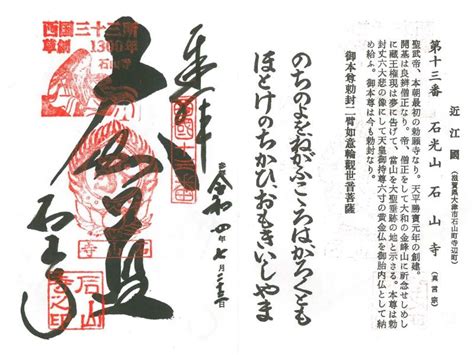 近江國（滋賀県大津市石山町寺辺町）
第十三番 石光山 石山寺（真言宗）
聖武帝、本朝最初の勅願寺なり。天平勝寶元年の創建。
開基は良辨僧正なり。帝、僧正をして大和の金峰山に祈念せしめし
に蔵王権現は夢に告げて、當山を大聖垂跡の地と示さる。本尊は勅
封丈六大悲の像にして天皇御持尊六寸の黄金仏を御胎内仏として納
め給ふ。御本尊は今も勅封なり。
御本尊勅封二臂如意輪観世音菩薩
のちのよをねがふこころはかろくとも
ほとけのちかひおもきいしやま
奉拝
令和四年七月
大伽藍
石山寺
西国三十三所
草創1300年
石山寺